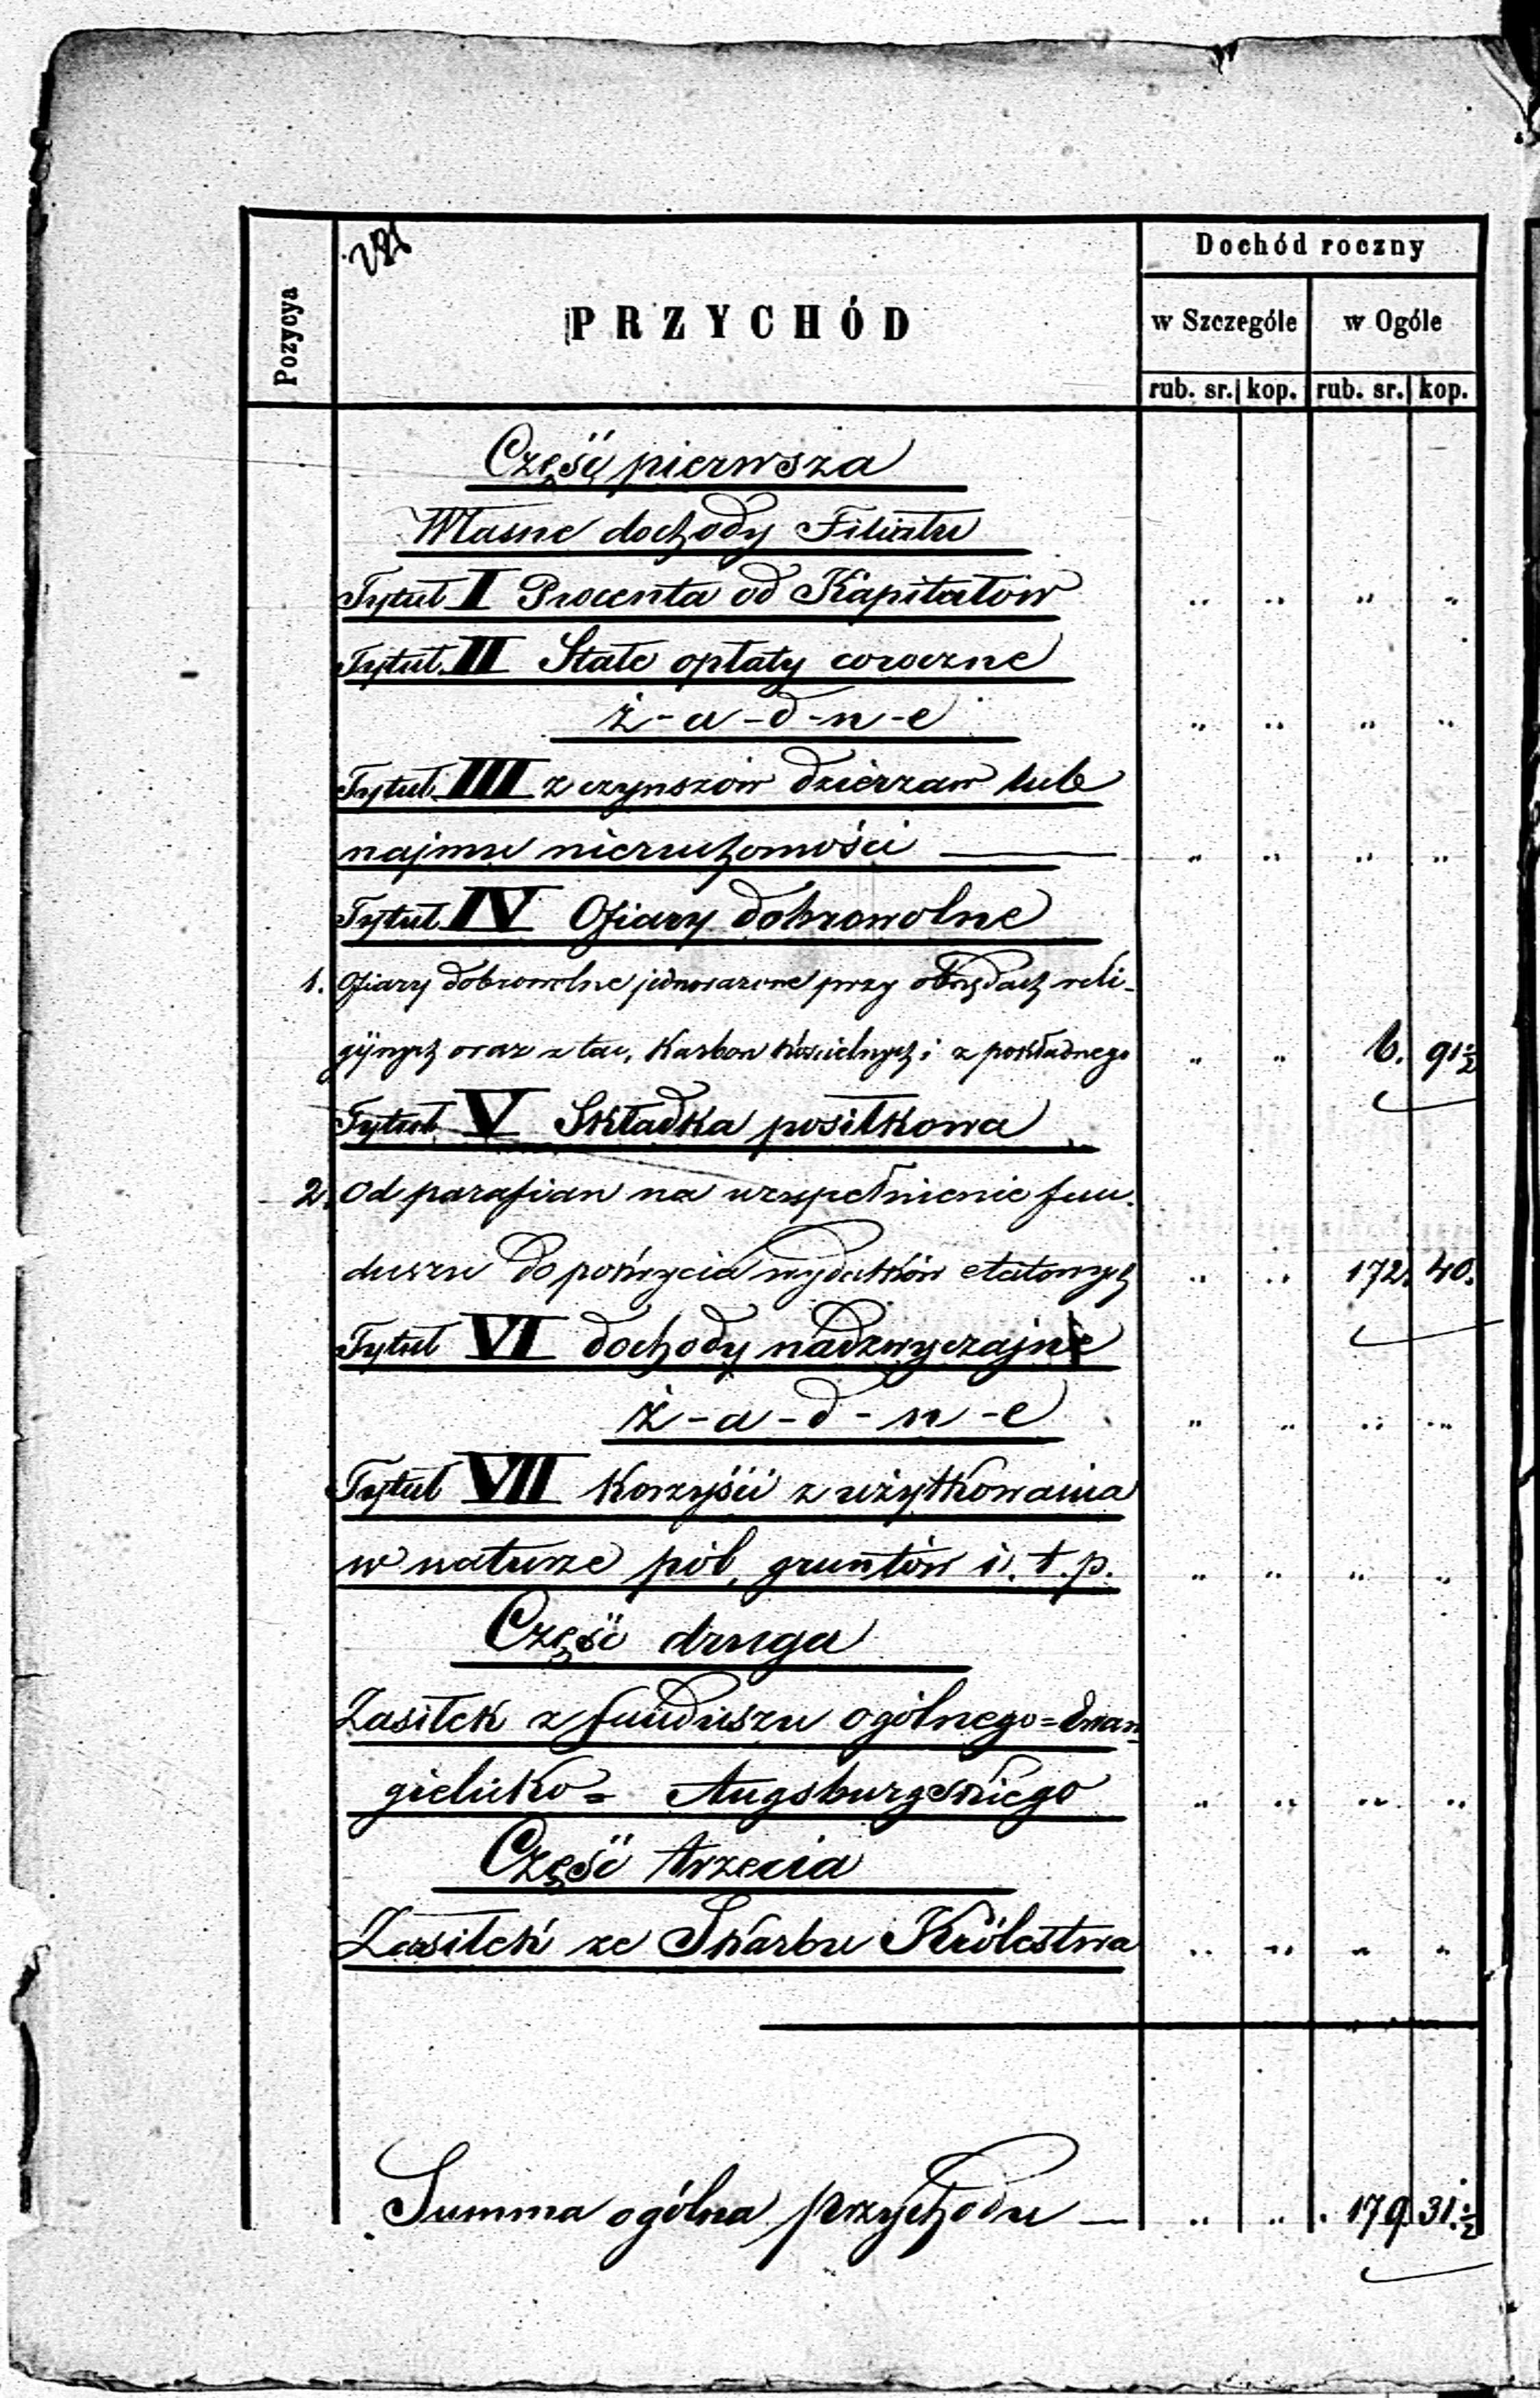 Pozycya
PRZYCHÓD
Dochód roczny
w Szczególe w Ogóle
rub. sr. kop. rub. sr. kop.
Część pierwsza
Własne dochody Filiału
Tytuł I Procenta od Kapitałów " " " "
Tytuł II Stałe opłaty coroczne
ż-a-d-n-e " " " "
Tytuł III z czynszów dzierżaw lub
najmu nieruchomości — " " " "
Tytuł IV Ofiary dobrowolne
1. Ofiary dobrowolne jednorazowe przy obrzędach reli-
gijnych oraz z tac, Karbon Kościelnych i z pokładnego " " 6. 91 ½
Tytuł V Składka posiłkowa
2. Od parafian na uzupełnienie fun-
duszu do pokrycia wydatków etatowych " " 172. 40.
Tytuł VI dochody nadzwyczajne
ż-a-d-n-e " " " "
Tytuł VII Korzyści z użytkowania
w naturze pól, gruntów i. t. p. " " " "
Część druga
Zasiłek z funduszu ogólnego=Ewan=
gielicko= Augsburgskiego " " " "
Część trzecia
Zasiłek ze Skarbu Królestwa " " " "
Summa ogólna przychodu — " " 179. 31. ½